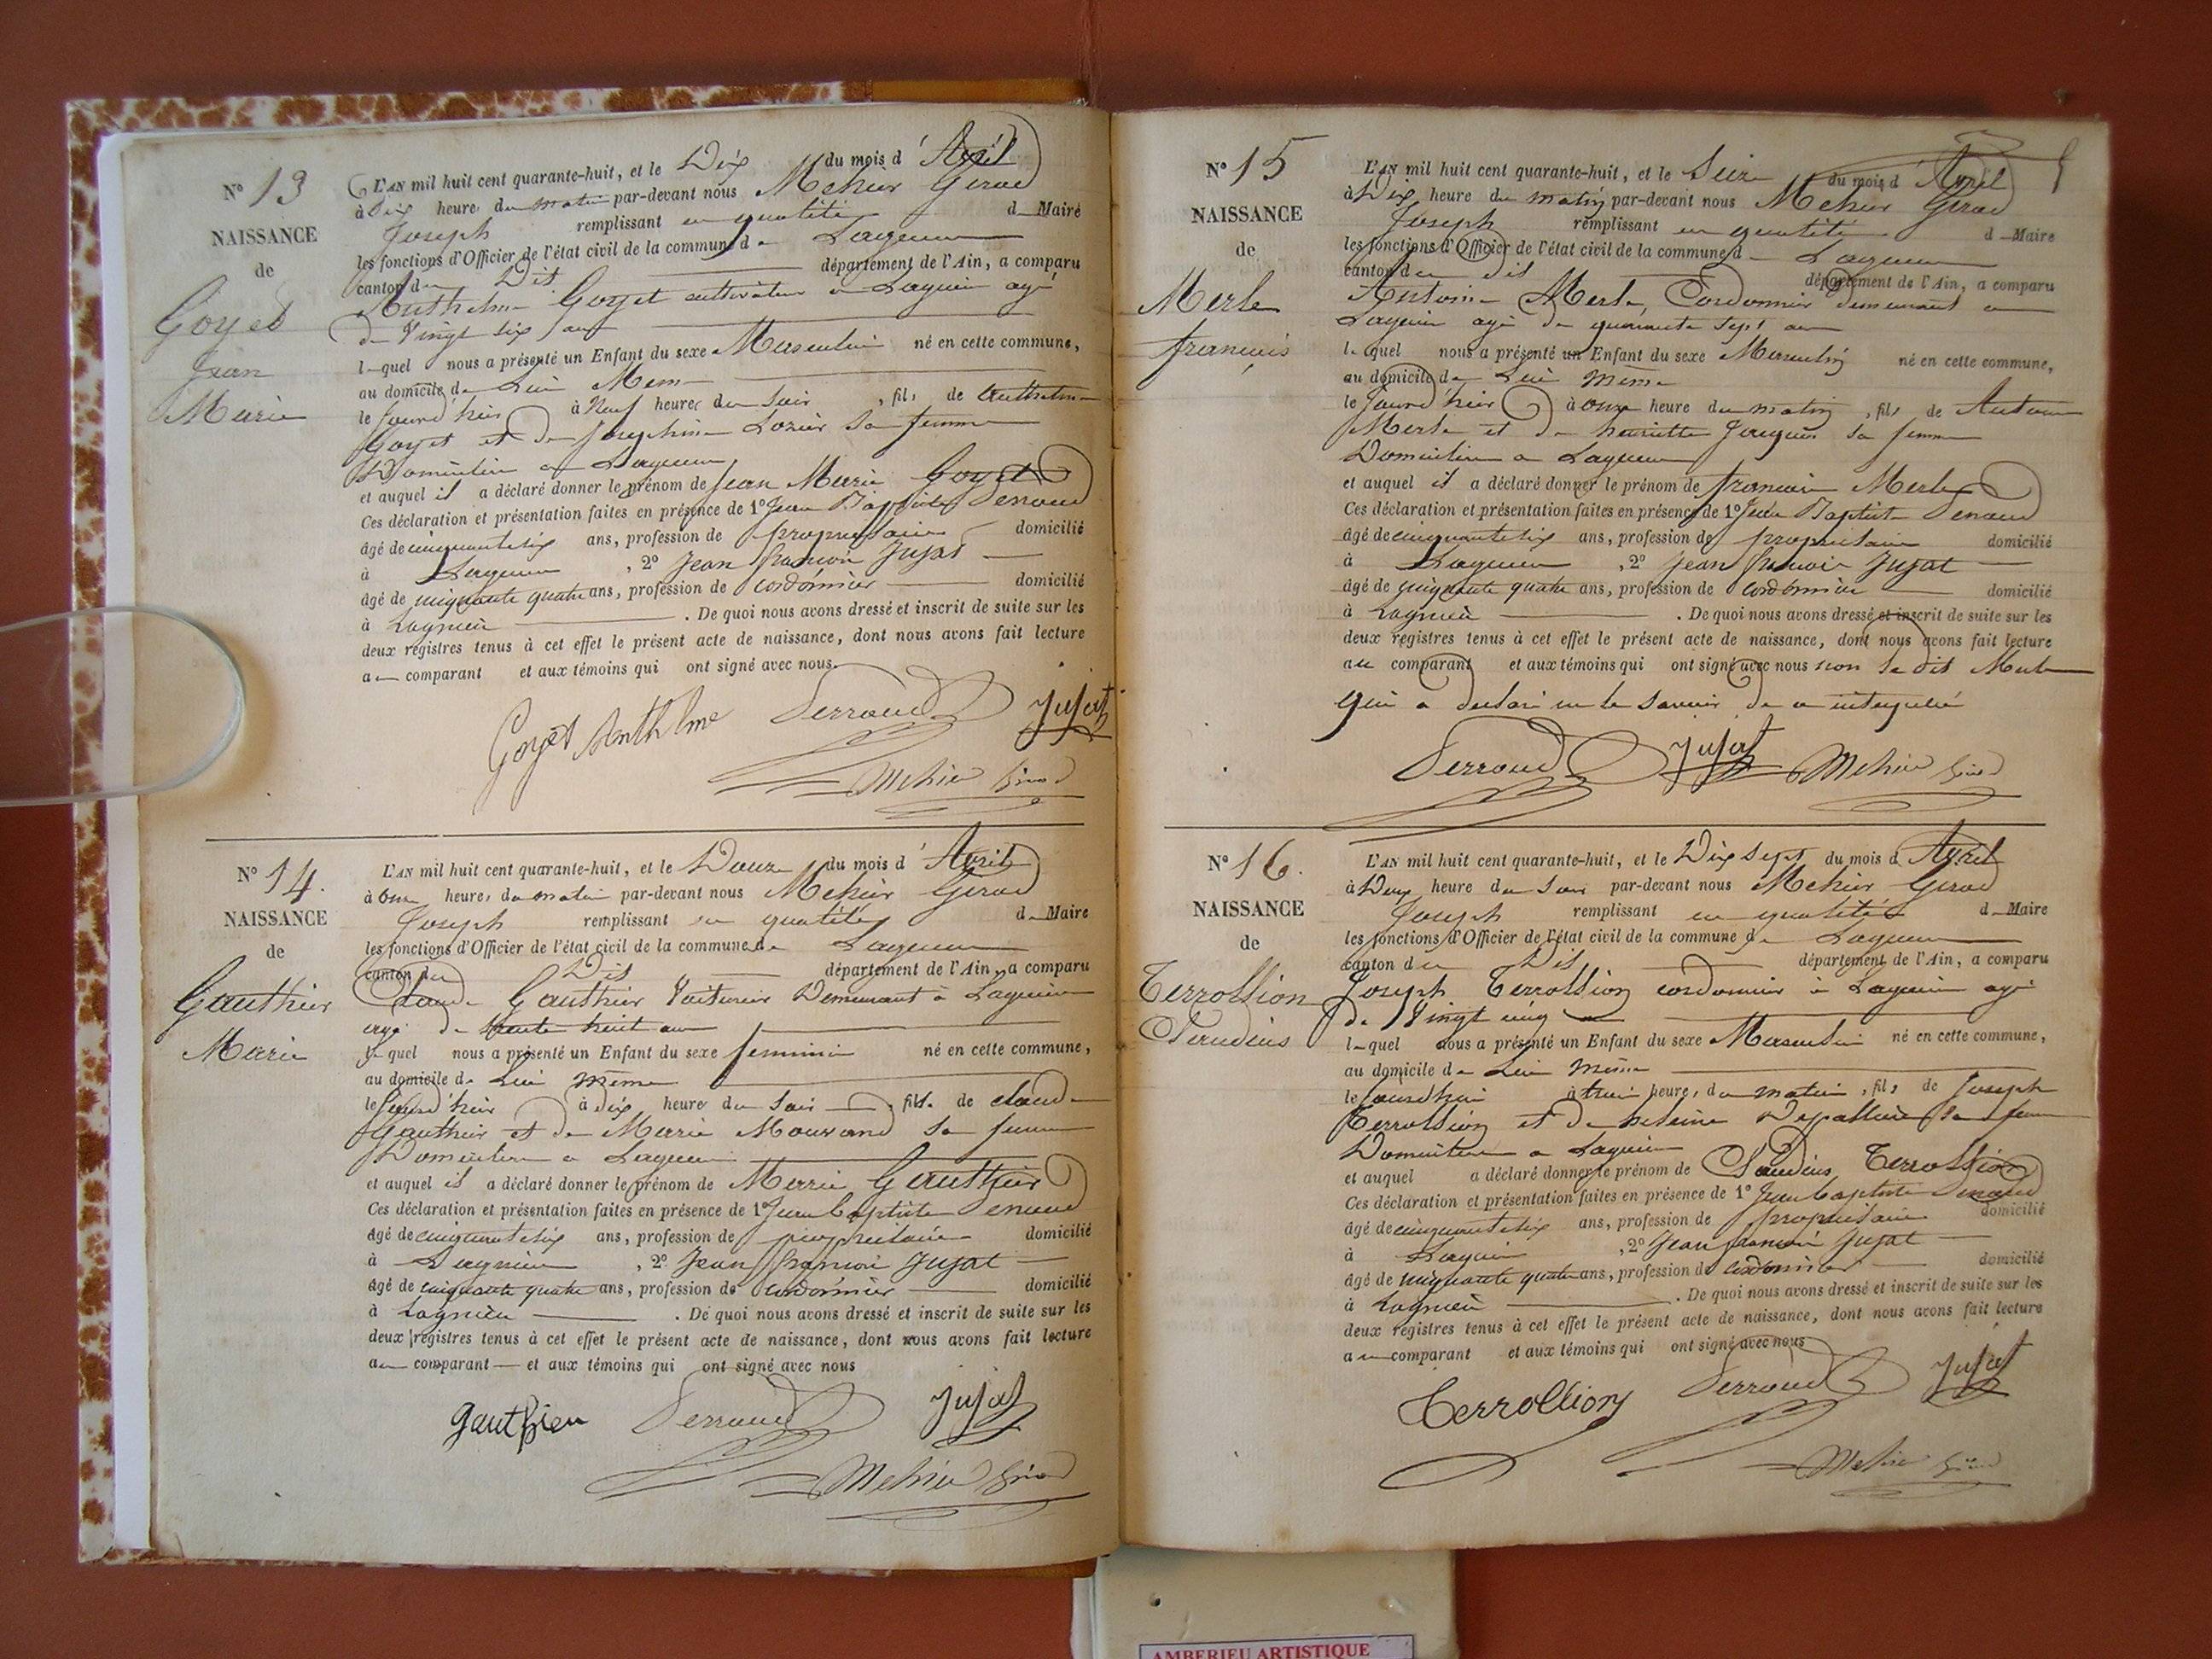 N° 13
NAISSANCE
de
Goyet
Jean
Marie
L'AN mil huit cent quarante-huit, et le Dix du mois d'Avril
à Dix heure du matin par-devant nous Mehier Girod
Joseph remplissant en qualité de Maire
les fonctions d'Officier de l'état civil de la commune de Lagnieu
canton du Dit département de l'Ain, a comparu
Anthelme Goyet cultivateur a Lagnieu agé
de Vingt six ans
lequel nous a présenté un Enfant du sexe Masculin né en cette commune,
au domicile de Lui Meme
le jourd'hier à Neuf heures du Soir, fils de Anthelme
Goyet et de Josephine Lozier Sa femme
Domicilié a Lagnieu
et auquel il a déclaré donner le prénom de Jean Marie Goyet
Ces déclaration et présentation faites en présence de 1° Jean Baptiste Serraud
âgé de cinquante six ans, profession de propriétaire domicilié
à Lagnieu, 2° Jean françois Jujat
âgé de cinquante quatre ans, profession de cordonnier domicilié
à Lagnieu. De quoi nous avons dressé et inscrit de suite sur les
deux registres tenus à cet effet le présent acte de naissance, dont nous avons fait lecture
au comparant et aux témoins qui ont signé avec nous.
Goyet Anthelme Serraud Jujat
Mehier Girod
N° 14.
NAISSANCE
de
Gauthier
Marie
L'AN mil huit cent quarante-huit, et le Douze du mois d'Avril
à onze heures du matin par-devant nous Mehier Girod
Joseph remplissant en qualité de Maire
les fonctions d'Officier de l'état civil de la commune de Lagnieu
canton du Dit département de l'Ain, a comparu
Claude Gauthier Voiturier Demeurant à Lagnieu
agé de trente huit ans
lequel nous a présenté un Enfant du sexe feminin né en cette commune,
au domicile de Lui même
le jourd'hier à dix heures du Soir, fille de claude
Gauthier et de Marie sa femme
Domicilié a Lagnieu
et auquel il a déclaré donner le prénom de Marie Gauthier
Ces déclaration et présentation faites en présence de 1° Jean baptiste Serraud
âgé de cinquante six ans, profession de propriétaire domicilié
à Lagnieu, 2° Jean françois Jujat
âgé de cinquante quatre ans, profession de cordonnier domicilié
à Lagnieu. De quoi nous avons dressé et inscrit de suite sur les
deux registres tenus à cet effet le présent acte de naissance, dont nous avons fait lecture
au comparant et aux témoins qui ont signé avec nous
gauthier Serraud Jujat
Mehier Girod
N° 15
NAISSANCE
de
Merle
francois
L'AN mil huit cent quarante-huit, et le Seize du mois d'Avril
à Dix heure du matin par-devant nous Mehier Girod
Joseph remplissant en qualité de Maire
les fonctions d'Officier de l'état civil de la commune de Lagnieu
canton du dit département de l'Ain, a comparu
Antoine Merle, Cordonnier demeurant a
Lagnieu agé de quarante sept ans
lequel nous a présenté un Enfant du sexe Masculin né en cette commune,
au domicile de Lui même
le jourd'hier à onze heure du matin, fils de Antoine
Merle et de henriette Jacquin sa femme
Domicilié a Lagnieu
et auquel il a déclaré donner le prénom de francois Merle
Ces déclaration et présentation faites en présence de 1° Jean Baptiste Serraud
âgé de cinquante six ans, profession de propriétaire domicilié
à Lagnieu, 2° Jean françois Jujat
âgé de cinquante quatre ans, profession de cordonnier domicilié
à Lagnieu. De quoi nous avons dressé et inscrit de suite sur les
deux registres tenus à cet effet le présent acte de naissance, dont nous avons fait lecture
au comparant et aux témoins qui ont signé avec nous non le dit Merle
qui a declaré ne le savoir de ce
Serraud Jujat Mehier Girod
N° 16.
NAISSANCE
de
Terrollion
L'AN mil huit cent quarante-huit, et le Dix Sept du mois d'Avril
à Deux heure du Soir par-devant nous Mehier Girod
Joseph remplissant en qualité de Maire
les fonctions d'Officier de l'état civil de la commune de Lagnieu
canton du Dit département de l'Ain, a comparu
Joseph Terrollion cordonnier a Lagnieu agé
de Vingt cinq
lequel nous a présenté un Enfant du sexe Masculin né en cette commune,
au domicile de Lui même
le jourdhui à trois heures du matin, fils de Joseph
Terrollion et de sa femme
Domicilié a Lagnieu
et auquel a déclaré donner le prénom de Terrollion
Ces déclaration et présentation faites en présence de 1° Jean baptiste Serraud
âgé de cinquante six ans, profession de propriétaire domicilié
à Lagnieu, 2° Jean françois Jujat
âgé de cinquante quatre ans, profession de cordonnier domicilié
à Lagnieu. De quoi nous avons dressé et inscrit de suite sur les
deux registres tenus à cet effet le présent acte de naissance, dont nous avons fait lecture
au comparant et aux témoins qui ont signé avec nous
Terrollion Serraud Jujat
Mehier Girod
AMBERIEU ARTISTIQUE